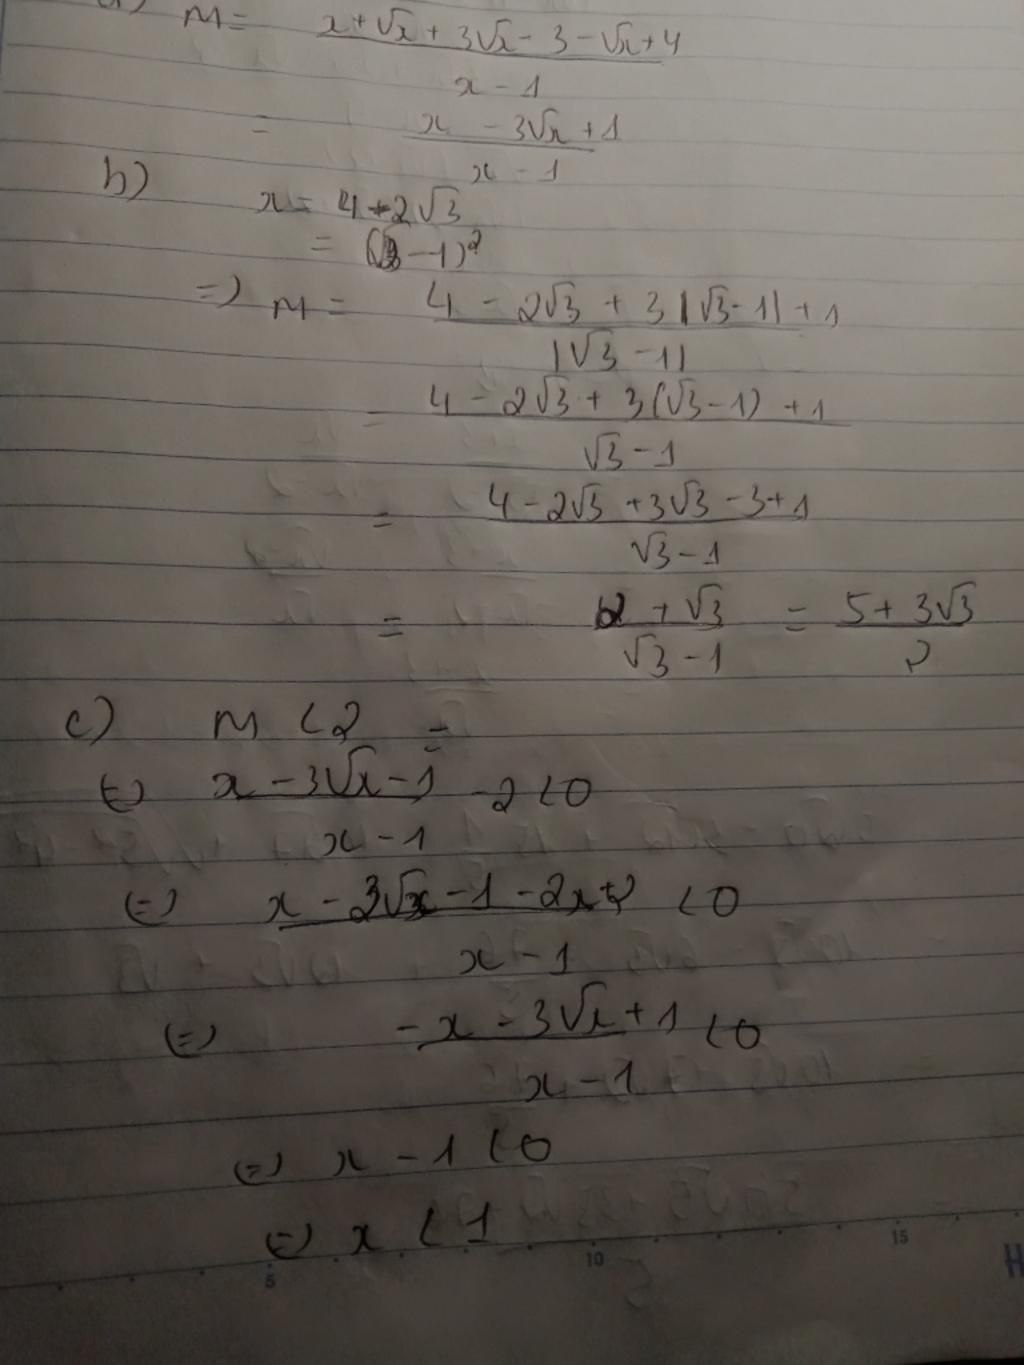 M = x + √x + 3√x - 3 - √x + 4 / x - 1
= x - 3√x + 1 / x - 1
b) x = 4 - 2√3
= (√3 - 1)²
=> M = 4 - 2√3 + 3|√3 - 1| + 1 / |√3 - 1|
= 4 - 2√3 + 3(√3 - 1) + 1 / √3 - 1
= 4 - 2√3 + 3√3 - 3 + 1 / √3 - 1
= 2 + √3 / √3 - 1 = 5 + 3√3 / 2
c) M < 2 =
(=) x - 3√x - 1 / x - 1 - 2 < 0
(=) x - 3√x - 1 - 2x + 2 / x - 1 < 0
(=) -x - 3√x + 1 / x - 1 < 0
(=) x - 1 < 0
(=) x < 1
5 10 15
H